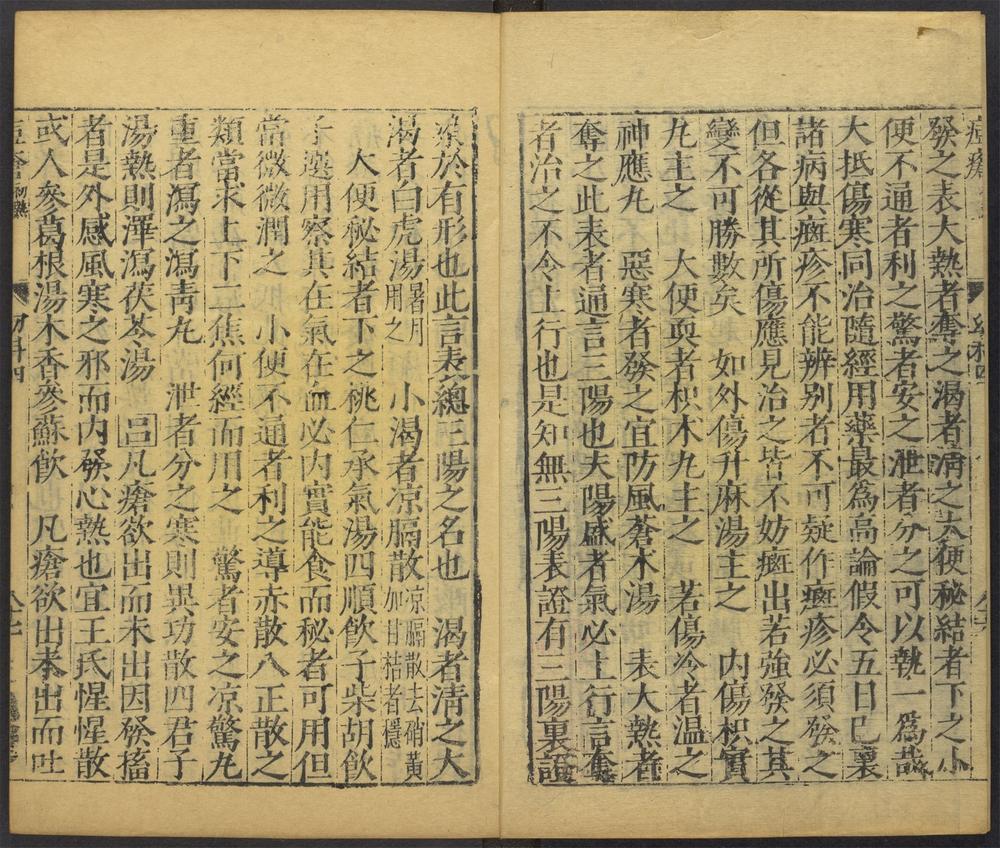 發之表大熱者奪之渴者清之大便秘結者下之小
便不通者利之驚者安之泄者分之可以執一爲哉
大抵傷寒同治隨經用藥最爲高論假令五日已裏
諸病與癍疹不能辨别者不可疑作癍疹必須發之
但各從其所傷應見治之皆不妨癍出若強發之其
變不可勝數矣 如外傷升麻湯主之 内傷枳實
丸主之 大便耎者枳木丸主之 若傷冷者温之
神應丸 惡寒者發之宜防風蒼木湯 表大熱者
奪之此表者通言三陽也夫陽盛者氣必上行言奪
者治之不令上行也是知無三陽表證有三陽裏證
於有形也此言表總三陽之名也 渴者清之大
渴者白虎湯暑月用之 小渴者凉膈散凉膈散去硝黃加甘桔者穩
大便秘結者下之桃仁承氣湯四順飲子柴胡飲
子選用察其在氣在血必内實能食而秘者可用但
當微微潤之 小便不通者利之導赤散八正散之
類當求上下二焦何經而用之 驚者安之凉驚丸
重者瀉之瀉青丸 泄者分之寒則異功散四君子
湯熱則澤瀉茯苓湯 呂凡瘡欲出而未出因發搐
者是外感風寒之邪而内發心熱也宜王氏惺惺散
或人參葛根湯木香參蘇飲 凡瘡欲出未出而吐